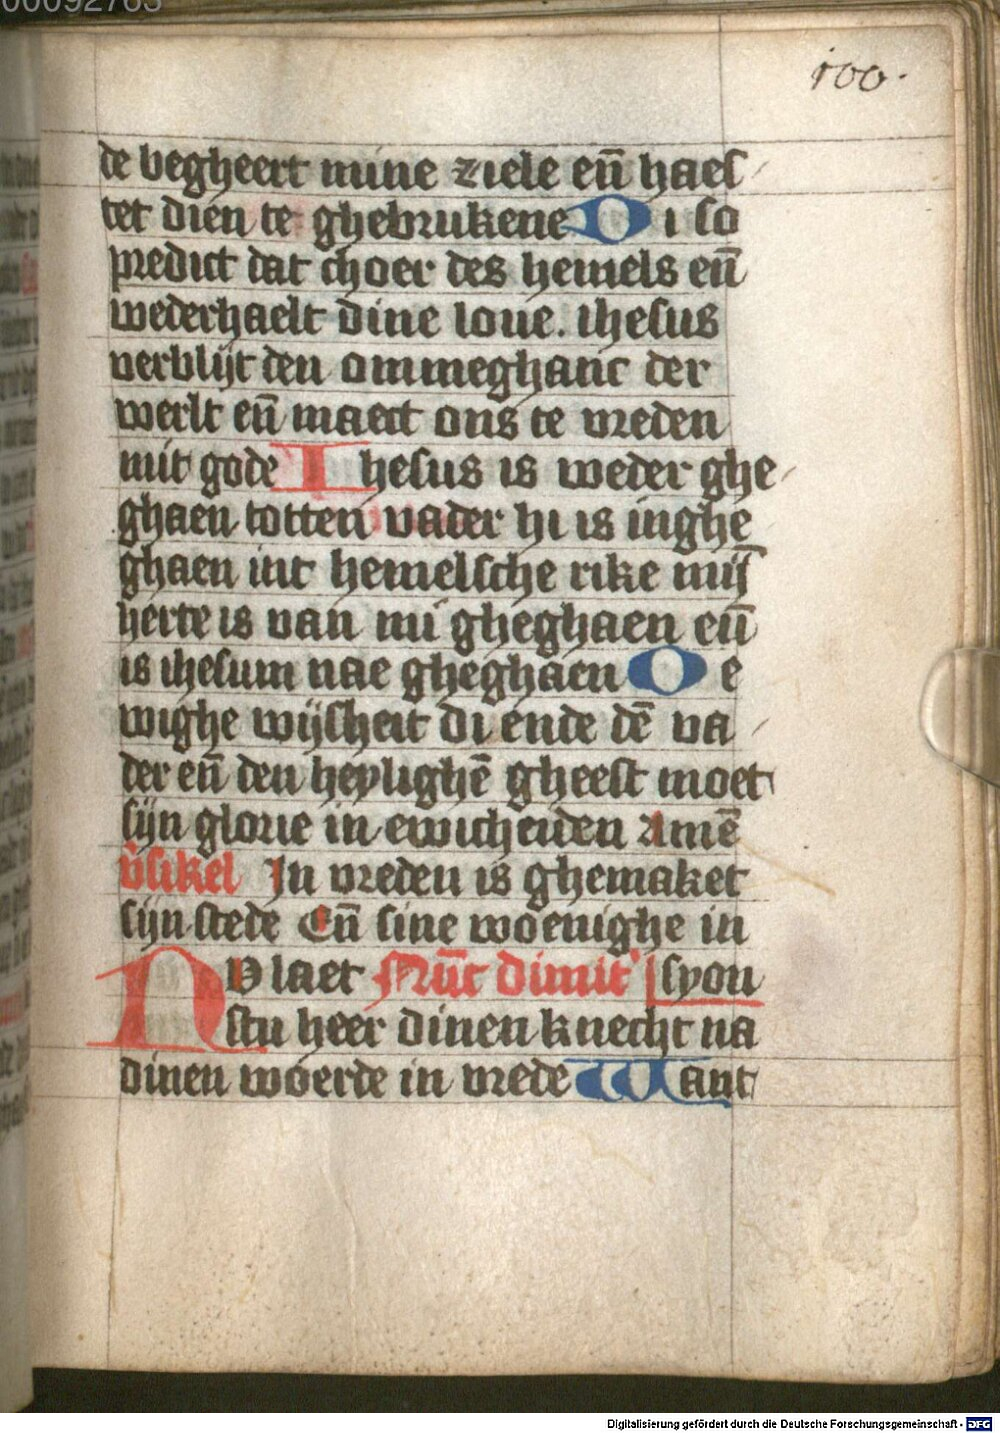 00092763
100.
de begheert mine ziele en̄ haes
tet dien te ghebrukene Di so
predict dat choer des hemels en̄
wederhaelt dine loue. ihesus
verblijt den ommeghanc der
werlt en̄ maect ons te vreden
mit gode Ihesus is weder ghe
ghaen totten vader hi is inghe
ghaen int hemelsche rike mij̄
herte is van mi gheghaen en̄
is ihesum nae gheghaen O e
wighe wijsheit di ende dē va
der en̄ den heylighē gheest moet
sijn glorie in ewicheiden Amē
v̄sikel In vreden is ghemaket
sijn stede En̄ sine woenighe in
NV laet Nūc dimit' syon
stu heer dinen knecht na
dinen woerde in vrede Want
Digitalisierung gefördert durch die Deutsche Forschungsgemeinschaft - DFG